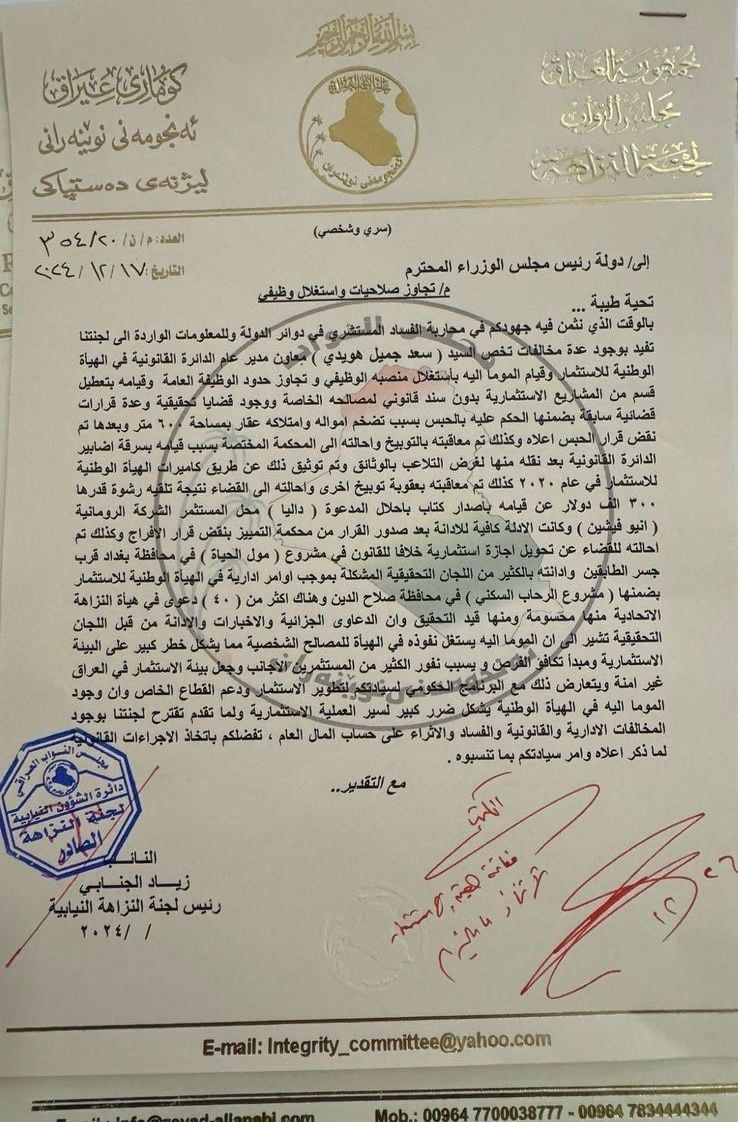 بسم الله الرحمن الرحيم
جمهورية العراق
مجلس النواب
لجنة النزاهة
كوماری عێراق
ئەنجومەنی نوێنەرانی
لیژنەی دەستپاکی
(سري وشخصي)
العدد: م/ن/٣٥٤/٢٠
التاريخ: ٢٠٢٤/١٢/١٧
إلى/ دولة رئيس مجلس الوزراء المحترم
م/ تجاوز صلاحيات واستغلال وظيفي
تحية طيبة ...
بالوقت الذي نثمن فيه جهودكم في محاربة الفساد المستشري في دوائر الدولة وللمعلومات الواردة الى لجنتنا
تفيد بوجود عدة مخالفات تخص السيد ( سعد جميل هويدي ) معاون مدير عام الدائرة القانونية في الهيأة
الوطنية للاستثمار وقيام الموما اليه بأستغلال منصبه الوظيفي و تجاوز حدود الوظيفة العامة وقيامه بتعطيل
قسم من المشاريع الاستثمارية بدون سند قانوني لمصالحه الخاصة ووجود قضايا تحقيقية وعدة قرارات
قضائية سابقة بضمنها الحكم عليه بالحبس بسبب تضخم امواله وامتلاكه عقار بمساحة ٦٠٠ متر وبعدها تم
نقض قرار الحبس اعلاه وكذلك تم معاقبته بالتوبيخ واحالته الى المحكمة المختصة بسبب قيامه بسرقة اضابير
الدائرة القانونية بعد نقله منها لغرض التلاعب بالوثائق وتم توثيق ذلك عن طريق كاميرات الهيأة الوطنية
للاستثمار في عام ٢٠٢٠ كذلك تم معاقبته بعقوبة توبيخ اخرى واحالته الى القضاء نتيجة تلقيه رشوة قدرها
٣٠٠ الف دولار عن قيامه بأصدار كتاب باحلال المدعوة ( داليا ) محل المستثمر الشركة الرومانية
( انيو فيشين ) وكانت الادلة كافية للادانة بعد صدور القرار من محكمة التمييز بنقض قرار الأفراج وكذلك تم
احالته للقضاء عن تحويل اجازة استثمارية خلافا للقانون في مشروع ( مول الحياة ) في محافظة بغداد قرب
جسر الطابقين وادانته بالكثير من اللجان التحقيقية المشكلة بموجب اوامر ادارية في الهيأة الوطنية للاستثمار
بضمنها ( مشروع الرحاب السكني ) في محافظة صلاح الدين وهناك اكثر من ( ٤٠ ) دعوى في هيأة النزاهة
الاتحادية منها محسومة ومنها قيد التحقيق وان الدعاوى الجزائية والاخبارات والادانة من قبل اللجان
التحقيقية تشير الى ان الموما اليه يستغل نفوذه في الهيأة للمصالح الشخصية مما يشكل خطر كبير على البيئة
الاستثمارية ومبدأ تكافؤ الفرص و يسبب نفور الكثير من المستثمرين الاجانب وجعل بيئة الاستثمار في العراق
غير امنة ويتعارض ذلك مع البرنامج الحكومي لسيادتكم لتطوير الاستثمار ودعم القطاع الخاص وان وجود
الموما اليه في الهيأة الوطنية يشكل ضرر كبير لسير العملية الاستثمارية ولما تقدم تقترح لجنتنا بوجود
المخالفات الادارية والقانونية والفساد والاثراء على حساب المال العام ، تفضلكم باتخاذ الاجراءات القانونية
لما ذكر اعلاه وامر سيادتكم بما تنسبوه .
مع التقدير..
مجلس النواب العراقي
دائرة الشؤون النيابية
لجنة النزاهة
الصادر
النائب
زياد الجنابي
رئيس لجنة النزاهة النيابية
/ /٢٠٢٤
٢٦
١٢
E-mail: Integrity_committee@yahoo.com
Mob.: 00964 7700038777 - 00964 7834444344